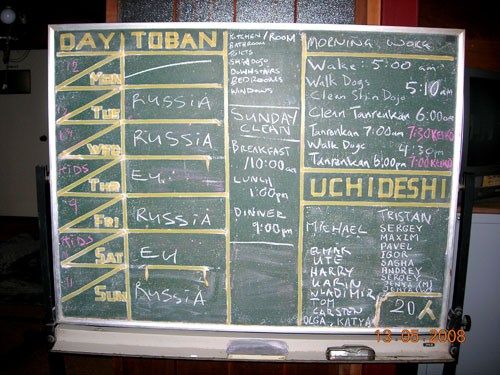 DAY TOBAN
MON
TUE RUSSiA
WED RUSSiA
KiDS
THU EU.
9
FRI RUSSiA
KiDS
SAT EU
11
SUN RUSSiA
KiTCHEN/ROOM
BATHROOM
SHiNDOJO
DOWNSTAiRS
BEDROOMS
WiNDOWS
SUNDAY
CLEAN
BREAKFAST
10:00am
LUNCH
1:00pm
DiNNER
9:00pm
MORNING WORK
Wake: 5:00 am
Walk Dogs 5:10 am
Clean Shin Dojo
Clean Tanrenkan 6:00am
Tanrenkan 7:00am 7:30 KEIKO
Walk Dogs 4:30pm
Tanrenkan 6:00pm 7:00 KEIKO
UCHIDESHI
MiCHAEL
UTE
HARRY
KARiN
WLADiMiR
TOM
CARSTEN
OLGA, KATYA
TRiSTAN
SERGEY
MAXiM
PAVEL
iGOR
SASHA
ANDREY
SERGEY
20
13-05-2008